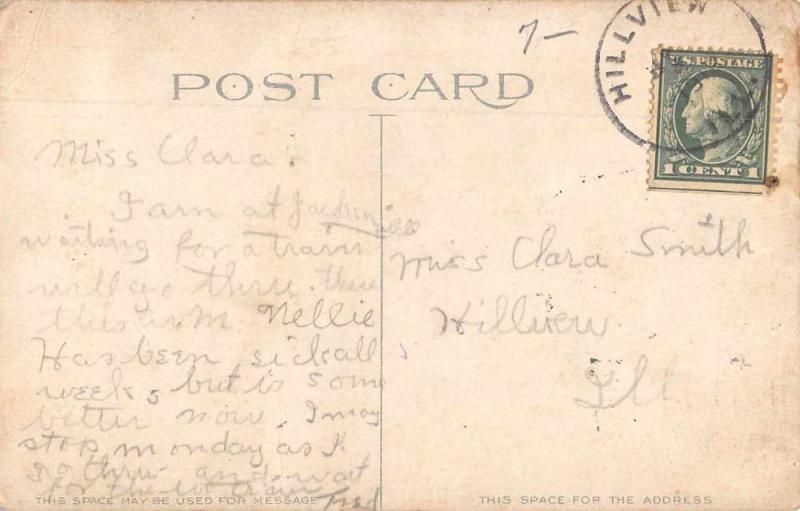 7-
HILLVIEW
ILL.
U.S. POSTAGE
1 CENT 1
POST CARD
Miss Clara:
I am at Jackson
ville
waiting for a train
will go thru there
this
Nellie
Has been sick all
week, but is some
better now. I may
stop monday as I
go thru and wait
for the
Fred
Miss Clara Smith
Hillview
Ill
THIS SPACE MAY BE USED FOR MESSAGE
THIS SPACE FOR THE ADDRESS